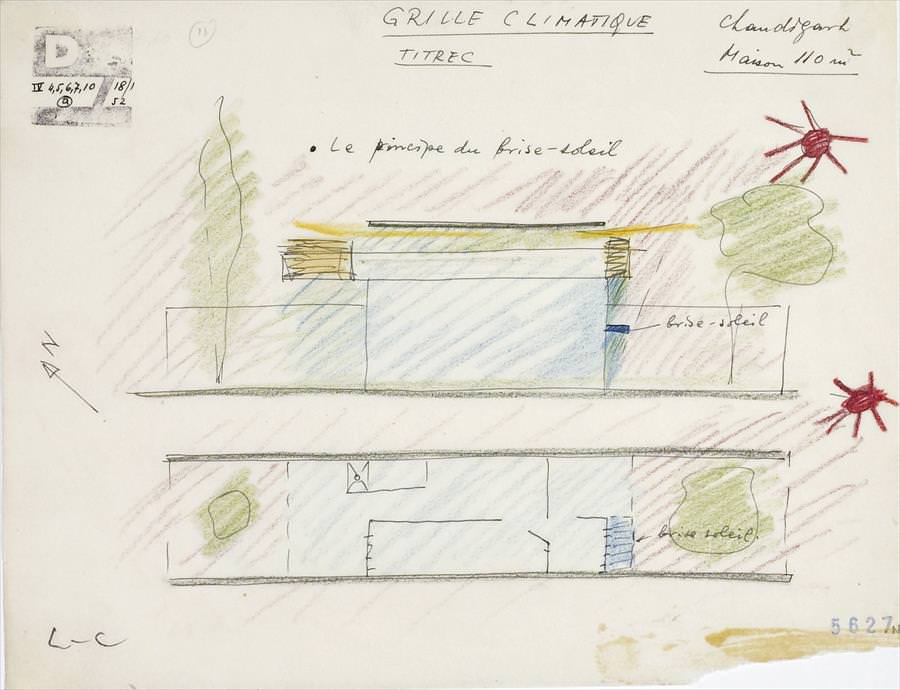 11
GRILLE CLIMATIQUE
TITRE C
Chandigarh
Maison 110 m²
D
IV 4,5,6,7,10 18/1
a 52
• Le principe du brise-soleil
brise-soleil
N
brise soleil.
L-C
5627